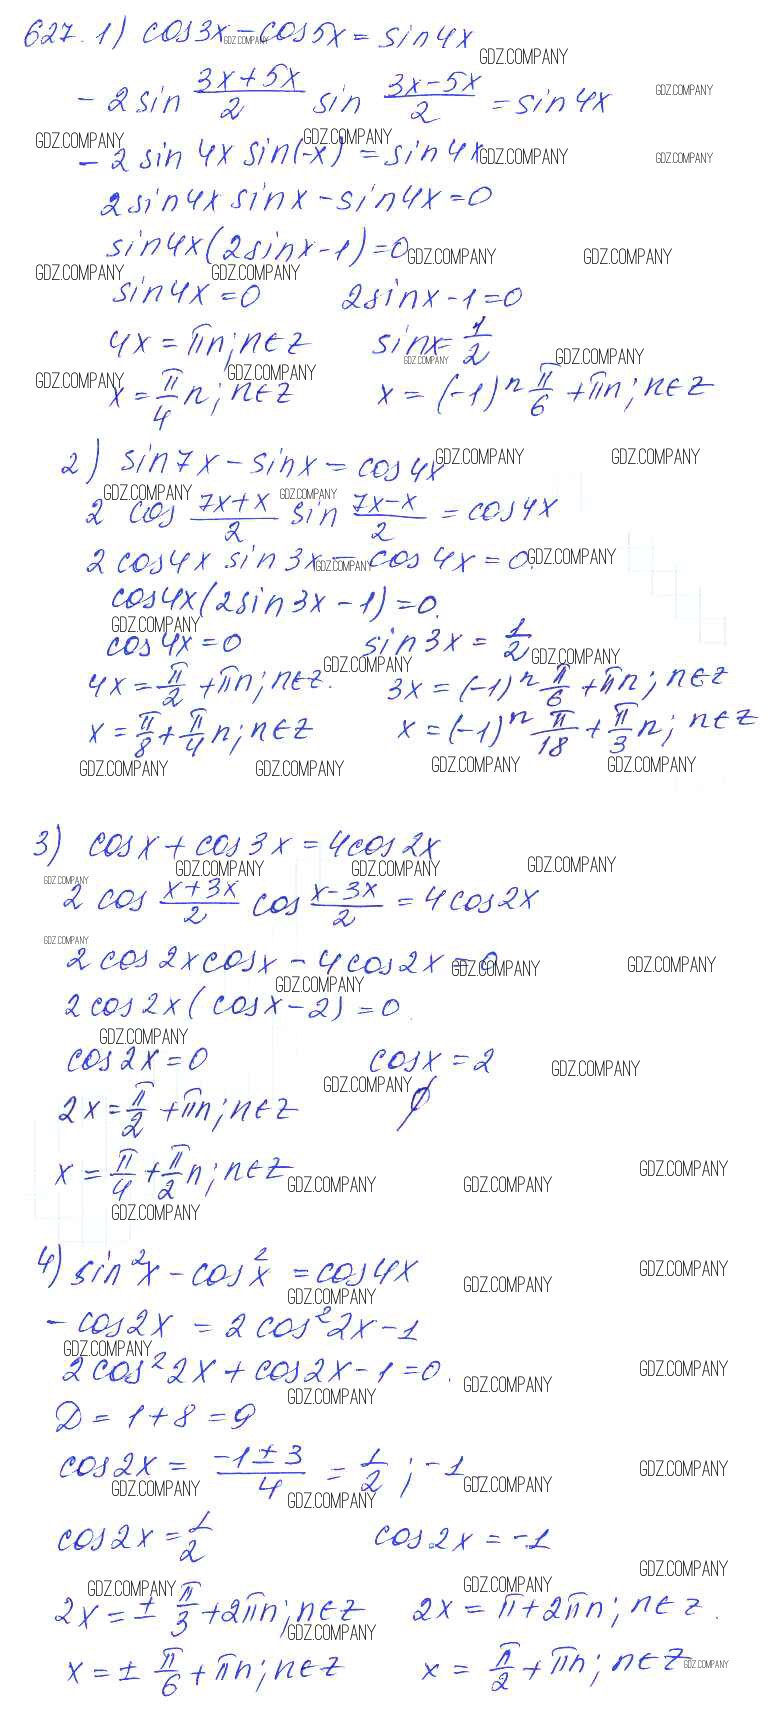 627. 1) cos3x - cos5x = sin4x
- 2 sin (3x+5x)/2 sin (3x-5x)/2 = sin4x
- 2 sin 4x sin(-x) = sin4x
2sin4x sinx - sin4x = 0
sin4x(2sinx-1) = 0
sin4x = 0 2sinx - 1 = 0
4x = πn; n∈Z sinx = 1/2
x = π/4 n; n∈Z x = (-1)ⁿ π/6 + πn; n∈Z
2) sin7x - sinx = cos4x
2 cos (7x+x)/2 sin (7x-x)/2 = cos4x
2 cos4x sin3x - cos4x = 0.
cos4x(2sin3x - 1) = 0.
cos4x = 0 sin3x = 1/2
4x = π/2 + πn; n∈Z. 3x = (-1)ⁿ π/6 + πn; n∈Z
x = π/8 + π/4 n; n∈Z x = (-1)ⁿ π/18 + π/3 n; n∈Z
3) cosx + cos3x = 4cos2x
2 cos (x+3x)/2 cos (x-3x)/2 = 4cos2x
2 cos2x cosx - 4cos2x = 0
2cos2x(cosx - 2) = 0.
cos2x = 0 cosx = 2
2x = π/2 + πn; n∈Z ∅
x = π/4 + π/2 n; n∈Z
4) sin²x - cos²x = cos4x
- cos2x = 2cos²2x - 1
2cos²2x + cos2x - 1 = 0.
D = 1 + 8 = 9
cos2x = (-1 ± 3)/4 = 1/2; -1
cos2x = 1/2 cos2x = -1
2x = ± π/3 + 2πn; n∈Z 2x = π + 2πn; n∈Z.
x = ± π/6 + πn; n∈Z x = π/2 + πn; n∈Z
GDZ.COMPANY